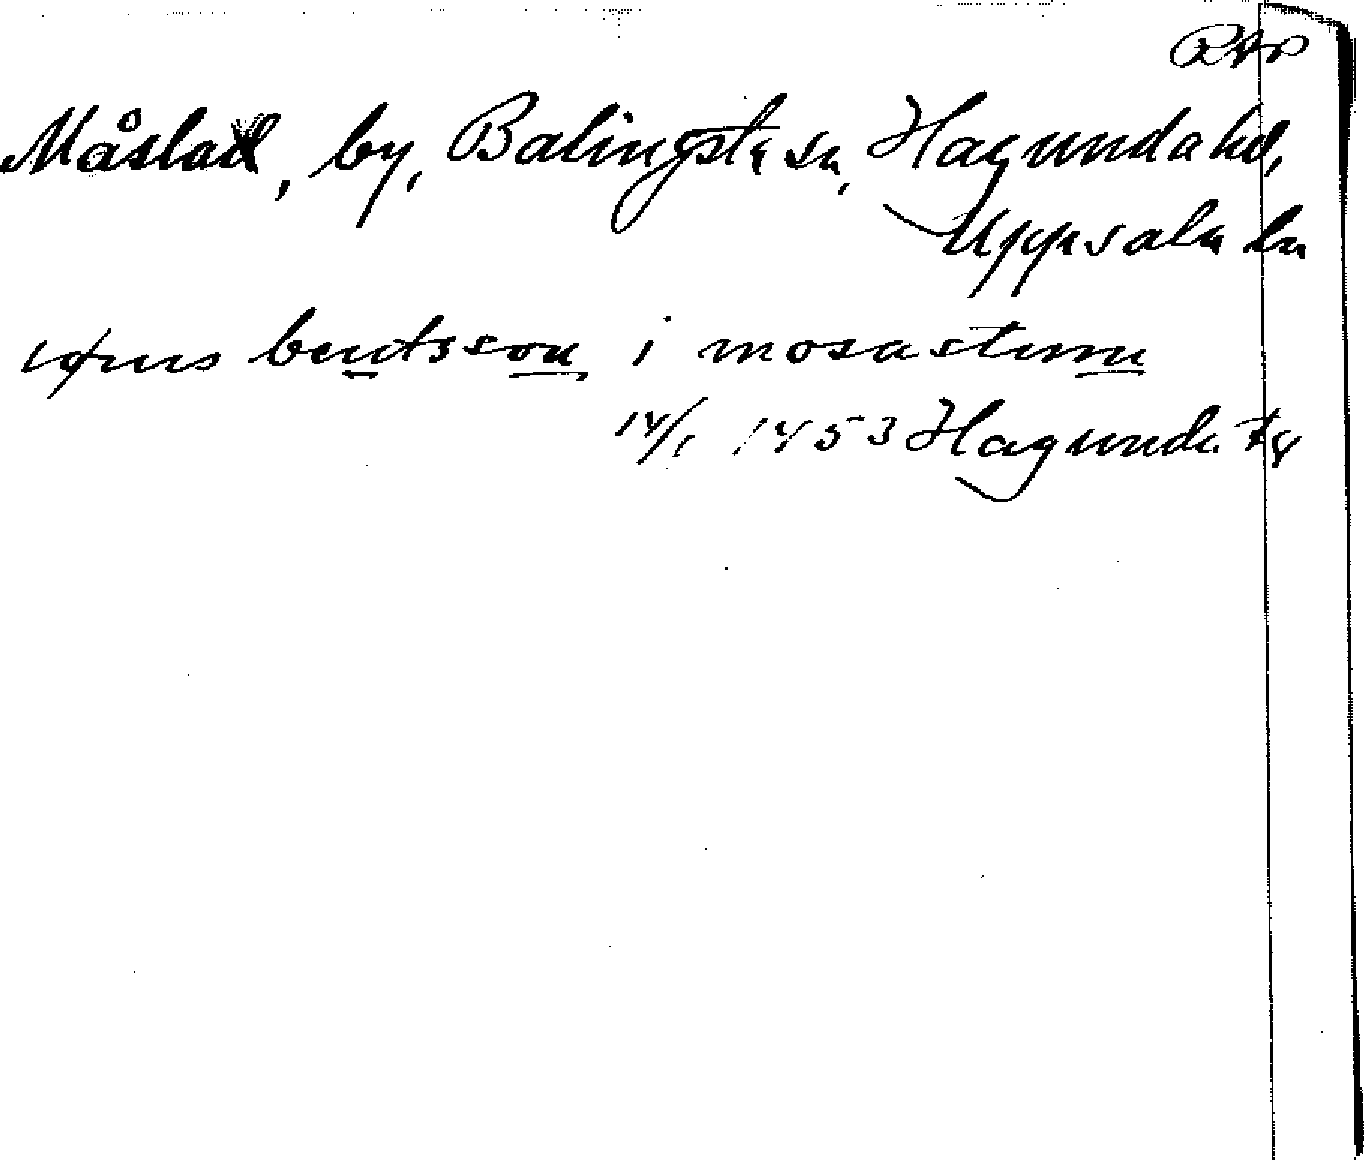 RAp
Måslad, by, Balingsta sn, Hagunda hd,
Uppsala län
bentsson i mosastunu
14/1 1453 Hagunda